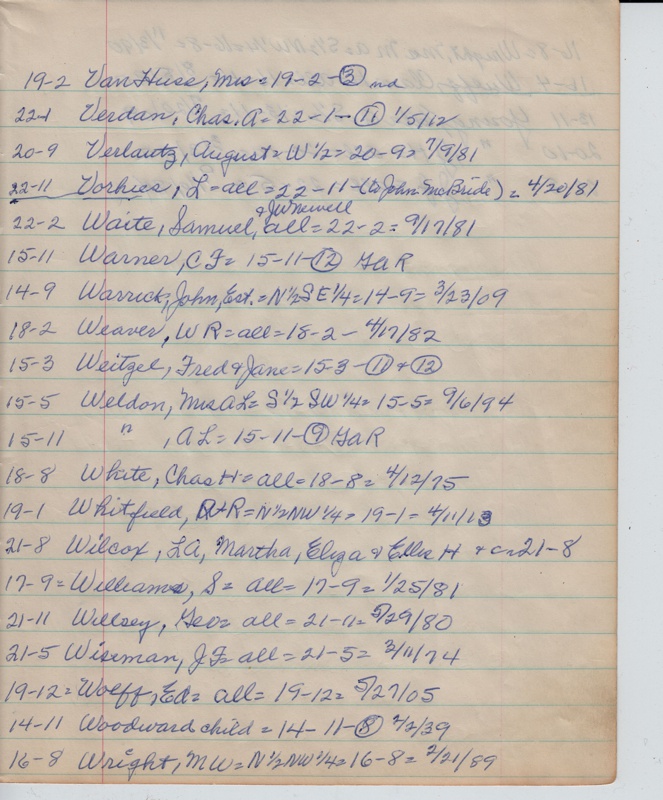 19-2 Van Huss, Mrs = 19-2-③ nd
22-1 Verdan, Chas. A = 22-1-⑪ 1/5/12
20-9 Verlautz, August = W 1/2 = 20-9 = 7/9/81
22-11 Vorhies, L = all = 22-11-(to John McBride) = 4/20/81
& JW Newell
22-2 Waite, Samuel, all = 22-2 = 9/17/81
15-11 Warner, C F = 15-11-⑫ GaR
14-9 Warrick, John, Est. = N 1/2 S E 1/4 = 14-9 = 3/23/09
18-2 Weaver, W R = all = 18-2 - 4/17/82
15-3 Weitzel, Fred & Jane = 15-3-⑪ & ⑫
15-5 Weldon, Mrs A L = S 1/2 SW 1/4 = 15-5 = 9/6/94
15-11 " , A L = 15-11-⑨ GaR
18-8 White, Chas H = all = 18-8 = 4/12/75
19-1 Whitfield, R + R = N 1/2 NW 1/4 = 19-1 = 4/11/13
21-8 Wilcox, L A, Martha, Eliza & Ella H + c = 21-8
17-9 = Williams, S = all = 17-9 = 1/25/81
21-11 Willsey, Geo = all = 21-11 = 5/29/80
21-5 Wiseman, J F = all = 21-5 = 3/11/74
19-12 = Wolff, Ed = all = 19-12 = 5/27/05
14-11 Woodward child = 14-11-⑧ 7/2/39
16-8 Wright, M W = N 1/2 NW 1/4 = 16-8 = 2/21/89